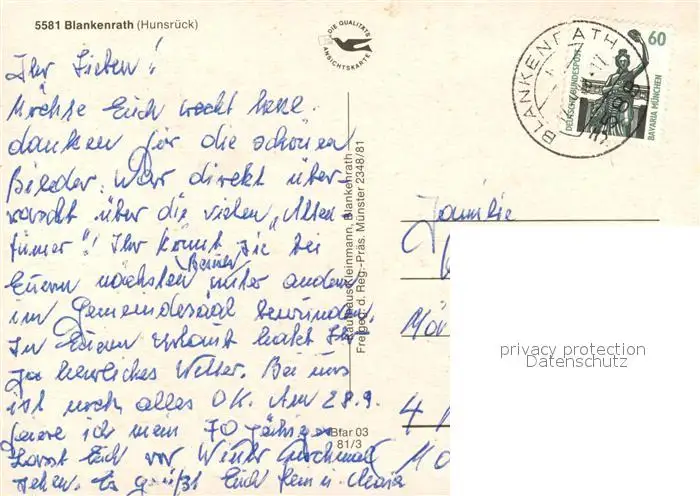 5581 Blankenrath (Hunsrück)
DIE QUALITÄTS
ANSICHTSKARTE
BLANKENRATH
60
DEUTSCHE BUNDESPOST
BAVARIA MÜNCHEN
Ihr Lieben!
Möchte Euch recht herzl.
danken für die schönen
Bilder. War direkt über-
rascht über die vielen "Alter-
tümer"! Ihr könnt sie bei
Eurem nächsten Besuch unter anderm
im Gemeindesaal bewundern.
In Eurem Urlaub hattet Ihr
ja herrliches Wetter. Bei uns
ist noch alles OK. Am 28.9.
feiere ich mein 70 jähriges
Lasst Euch vor Winter nochmal
sehen. Es grüßt Euch u. Maria
Kaufhaus Kleinmann, Blankenrath
Freigeg. d. Reg.-Präs. Münster 2348/81
Bfar 03
81/3
Familie
4
privacy protection
Datenschutz